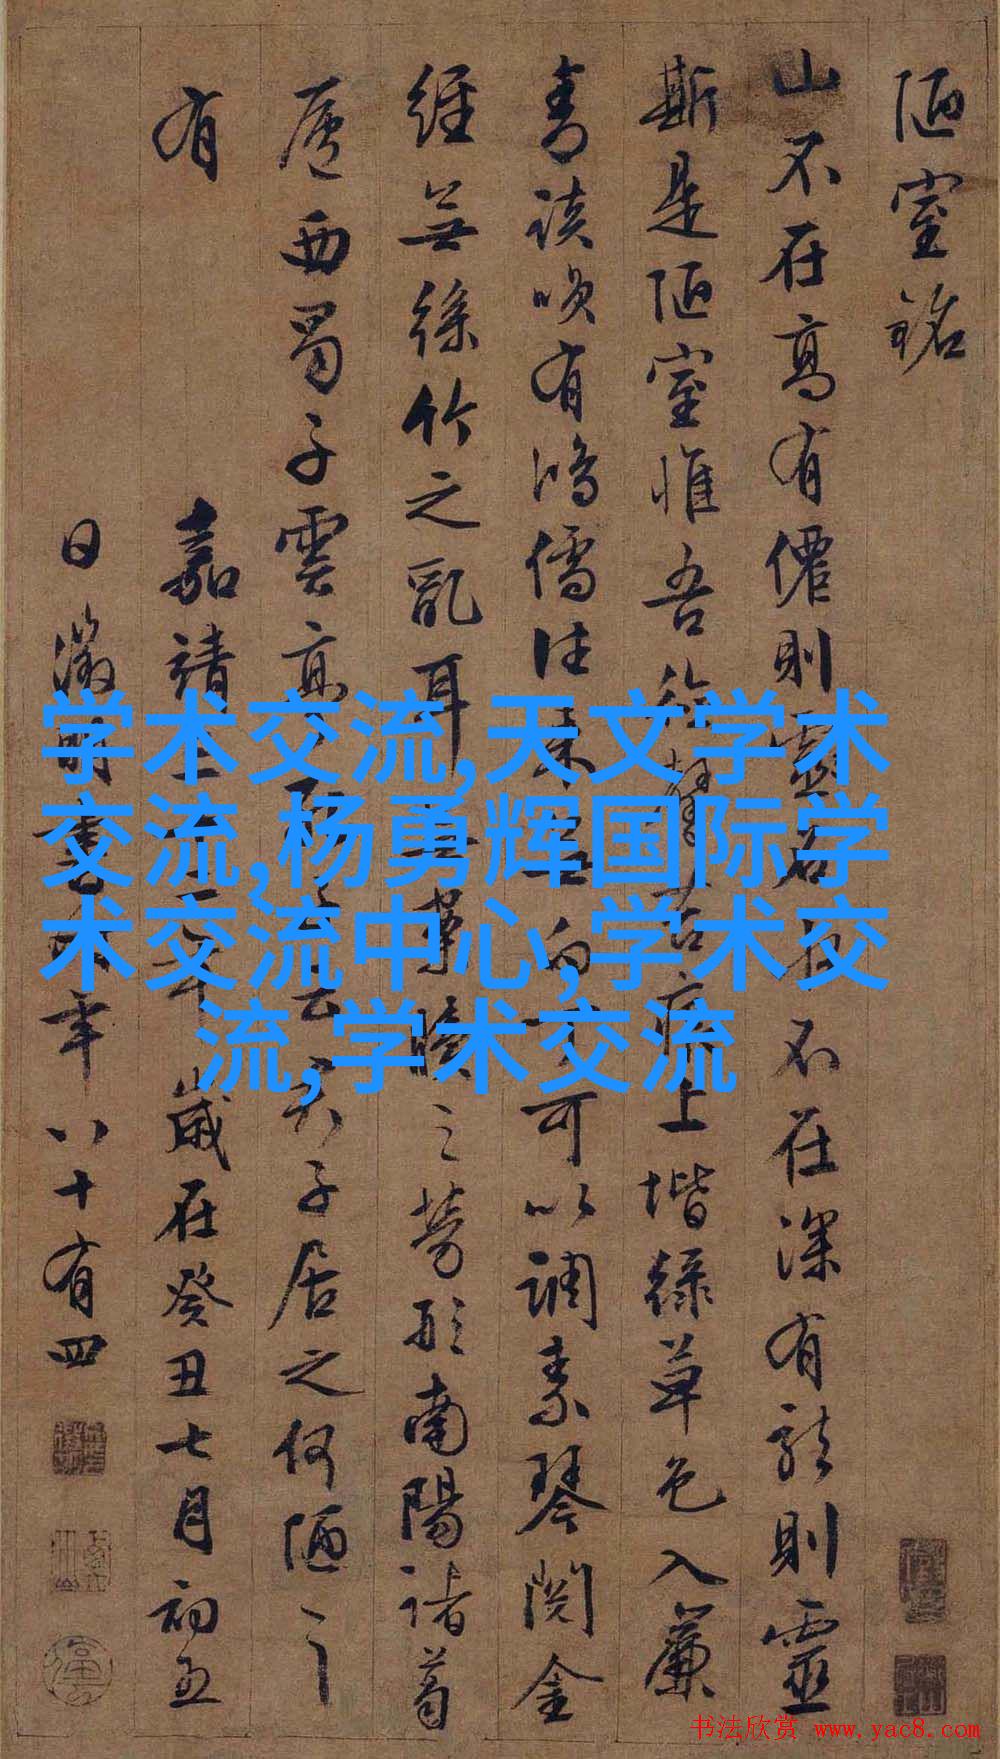 陋室銘
山不在高有僊則靈水不在深有龍則靈
斯是陋室惟吾德馨苔痕上堦緑草色入簾
青談咲有鴻儒往來無白丁可以調素琴閱金
經無絲竹之亂耳無案牘之勞形南陽諸葛
廬西蜀子雲亭孔子云君子居之何陋之
有
嘉靖三十二年歲在癸丑七月初五
日徵明書時年八十有四
学术交流,天文学术
交流,杨勇辉国际学
术交流中心,学术交
流,学术交流
书法欣赏 www.yac8.com